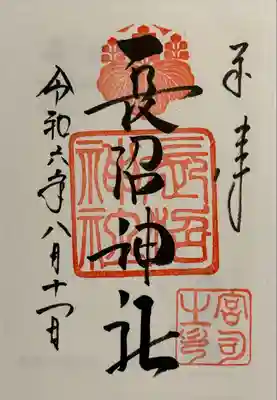 奉拝
長沼神社
令和六年八月十一日
長沼神社
宮司之印